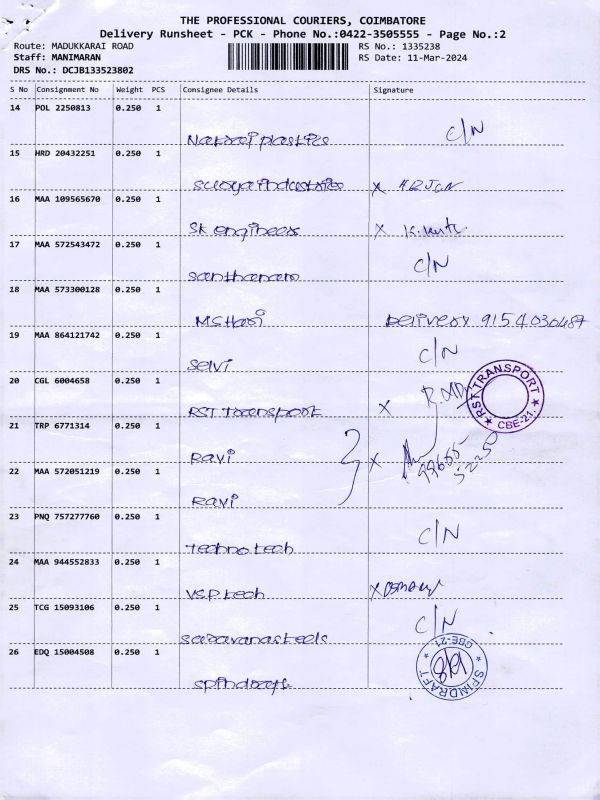 THE PROFESSIONAL COURIERS, COIMBATORE
Delivery Runsheet - PCK - Phone No.:0422-3505555 - Page No.:2
Route: MADUKKARAI ROAD RS No.: 1335238
Staff: MANIMARAN RS Date: 11-Mar-2024
DRS No.: DCJB133523802
S No Consignment No Weight PCS Consignee Details Signature
14 POL 2250813 0.250 1
Natraj plastics C/N
15 HRD 20432251 0.250 1
Surya industries x
16 MAA 109565670 0.250 1
SK engineers x
17 MAA 572543472 0.250 1
Santhanam C/N
18 MAA 573300128 0.250 1
MS Hari Delivery 9154030487
19 MAA 864121742 0.250 1
Selvi C/N
20 CGL 6004658 0.250 1
RST Transport x RSK TRANSPORT CBE-21.
21 TRP 6771314 0.250 1
Ravi x
22 MAA 572051219 0.250 1
Ravi
23 PNQ 757277760 0.250 1
Techno tech C/N
24 MAA 944552833 0.250 1
VSP tech x
25 TCG 15093106 0.250 1
Saravana steels C/N
26 EDQ 15004508 0.250 1
Spindraft SPINDRAFT CBE-21